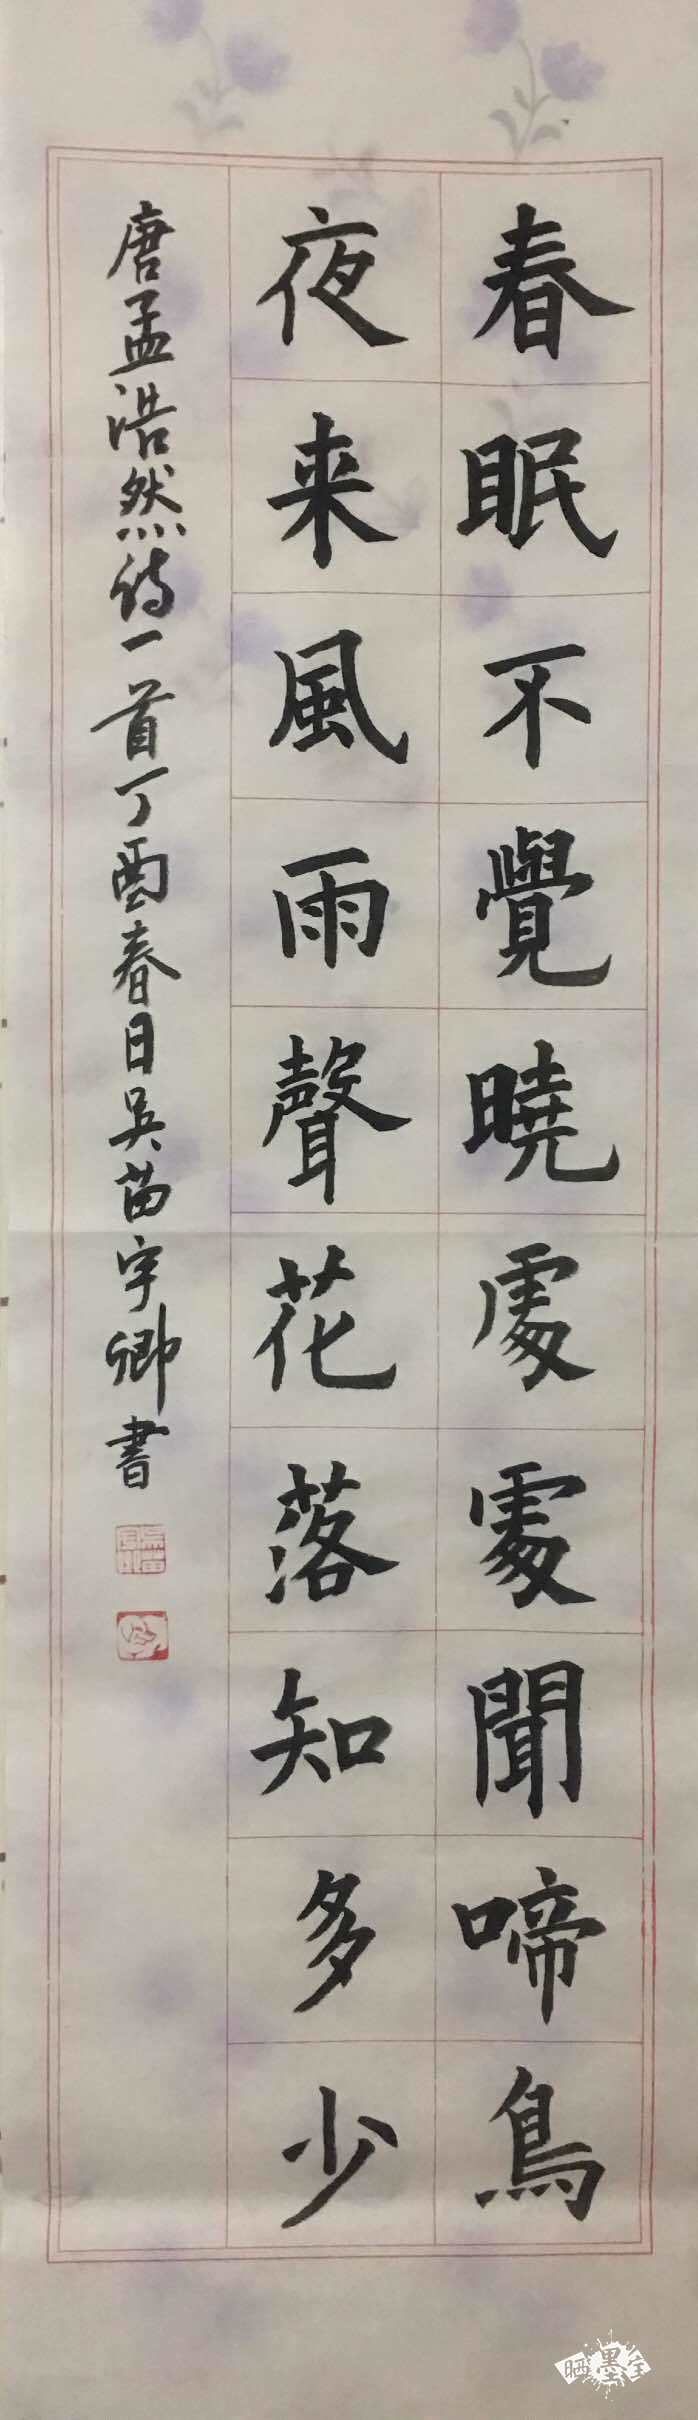 春眠不覺曉處處聞啼鳥
夜来風雨聲花落知多少
唐孟浩然诗一首丁酉春日吴苗宇卿書
晒墨宝